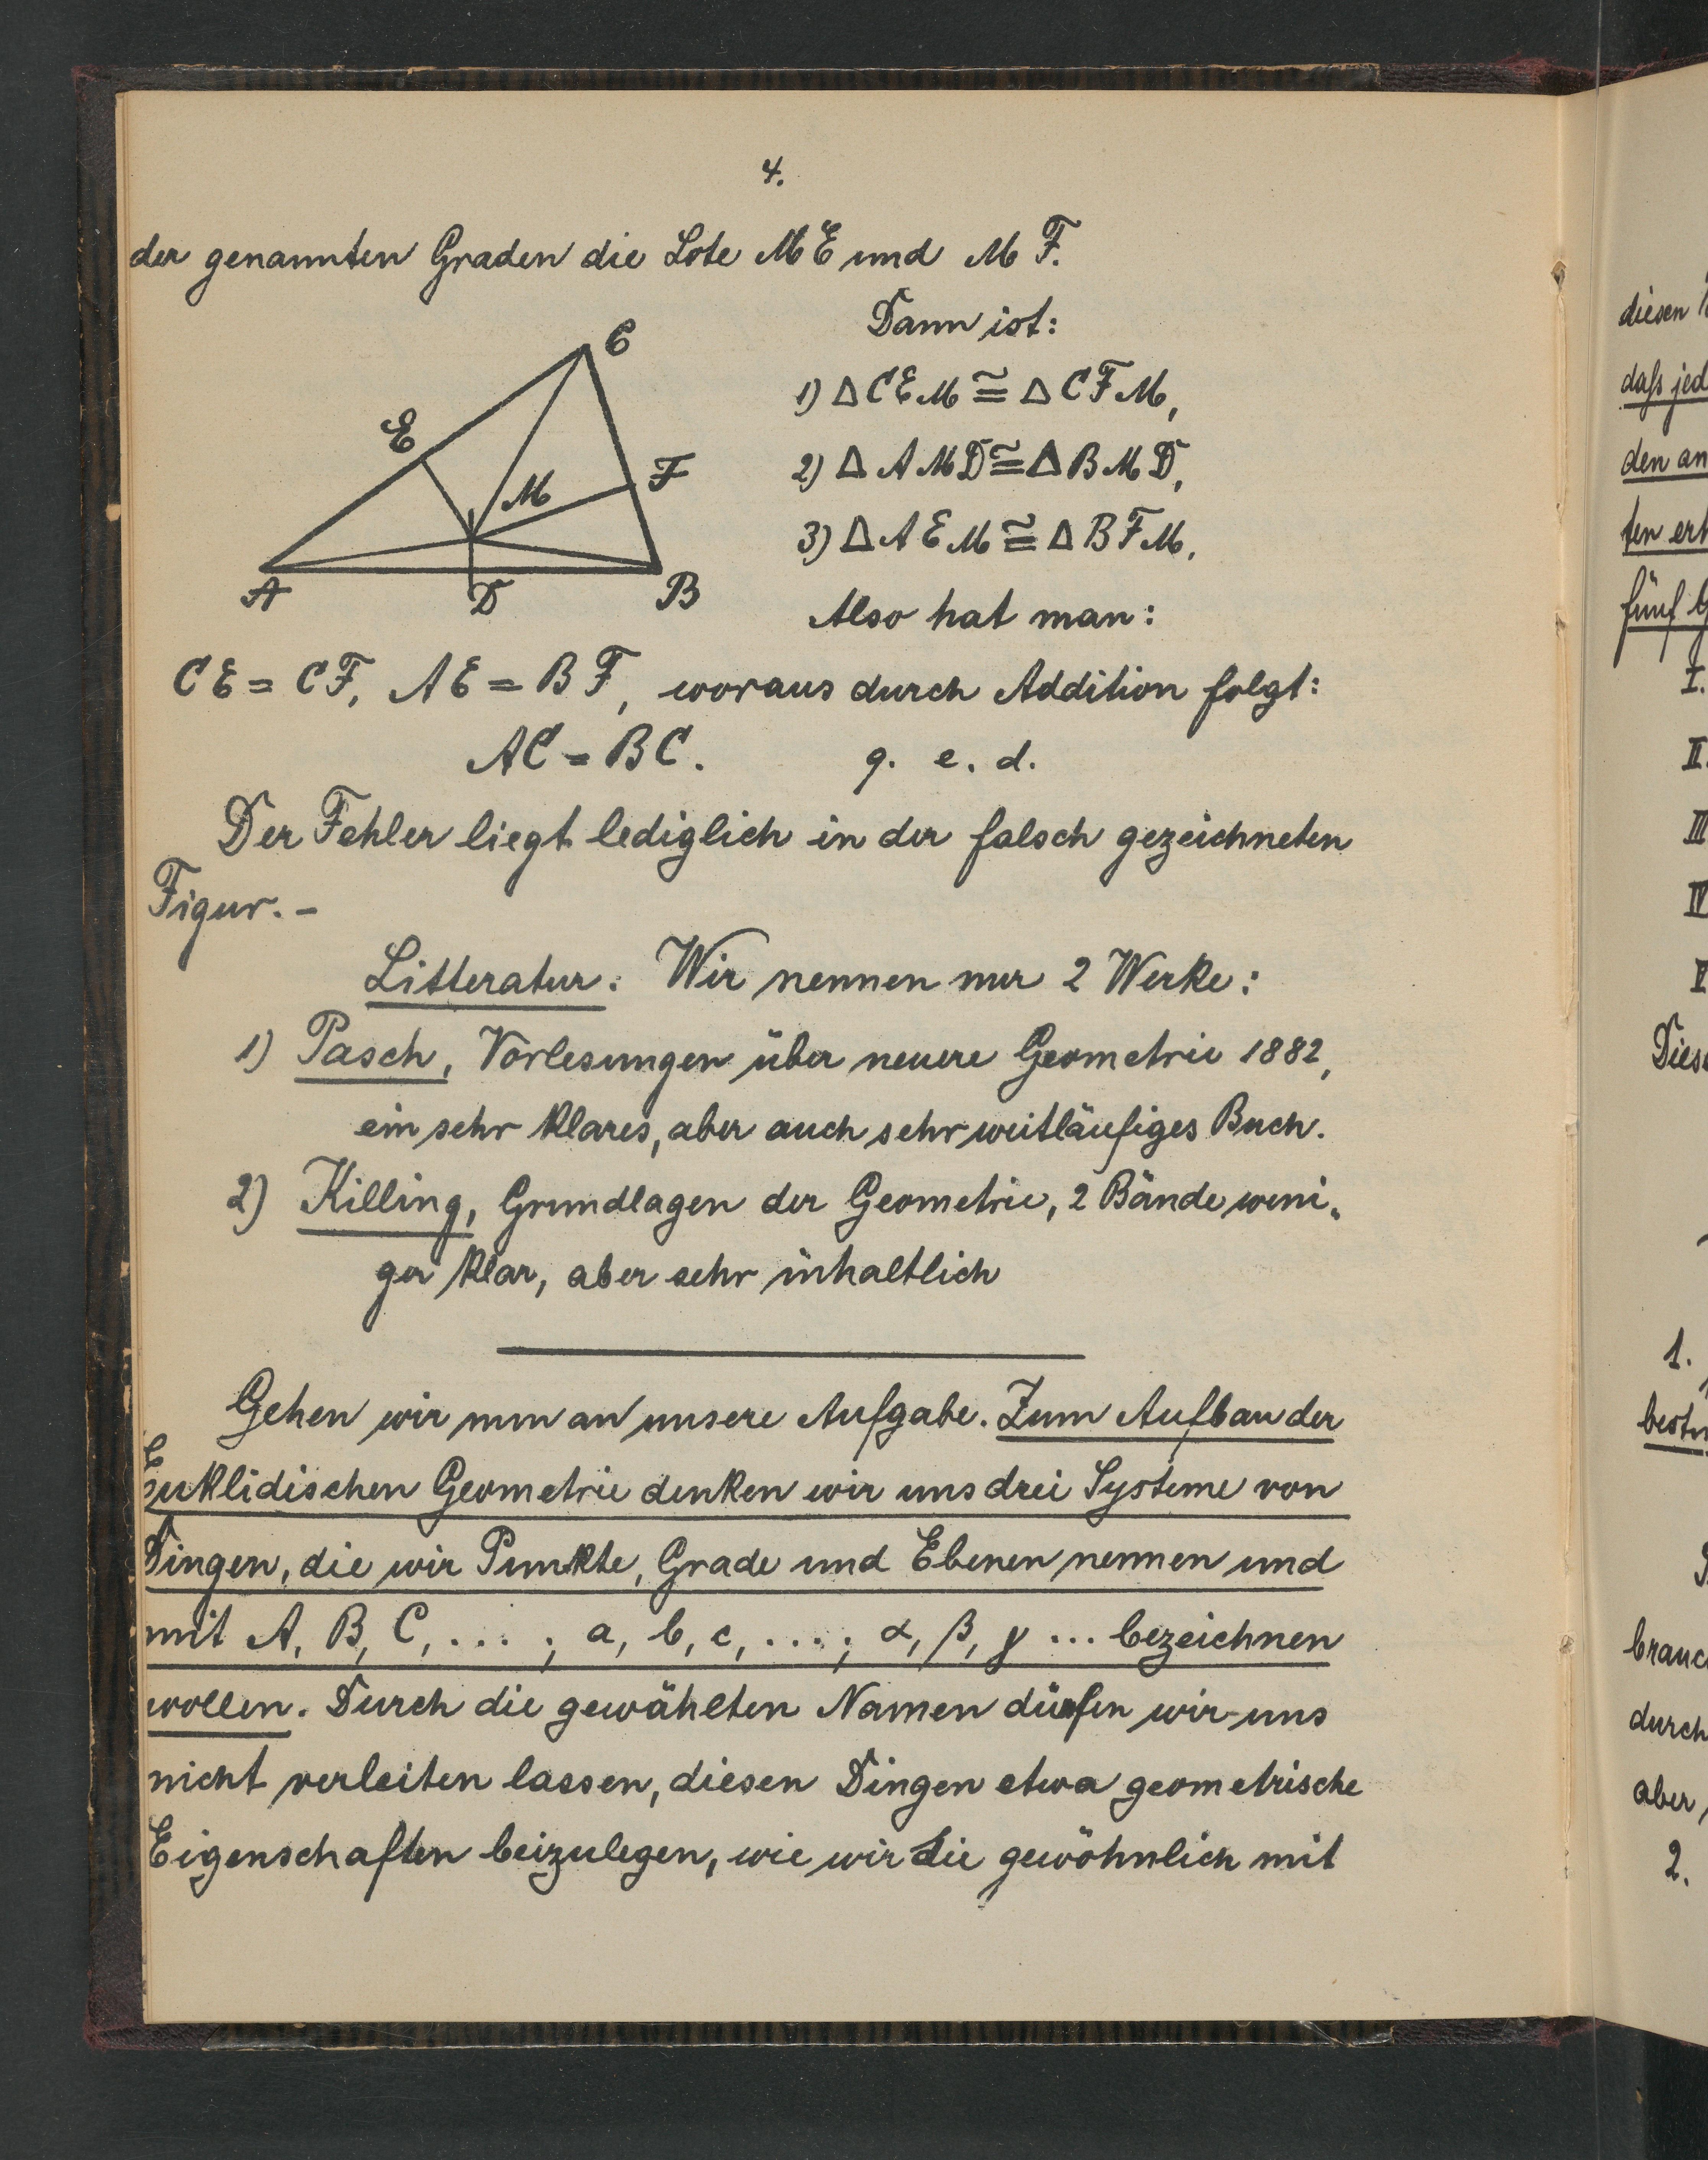 4.
der genannten Graden die Lote ME und MF.
Dann ist:
C
E
M
F
A
D
B
1) △CEM ≅ △CFM,
2) △AMD ≅ △BMD,
3) △AEM ≅ △BFM.
Also hat man:
CE = CF, AE = BF, woraus durch Addition folgt:
AC = BC. q. e. d.
Der Fehler liegt lediglich in der falsch gezeichneten
Figur. –
Litteratur: Wir nennen nur 2 Werke:
1) Pasch, Vorlesungen über neuere Geometrie 1882,
ein sehr klares, aber auch sehr weitläufiges Buch.
2) Killing, Grundlagen der Geometrie, 2 Bände weni-
ger klar, aber sehr inhaltlich
Gehen wir nun an unsere Aufgabe. Zum Aufbau der
Euklidischen Geometrie denken wir uns drei Systeme von
Dingen, die wir Punkte, Grade und Ebenen nennen und
mit A, B, C, ... ; a, b, c, ....; α, β, γ ... bezeichnen
wollen. Durch die gewählten Namen dürfen wir uns
nicht verleiten lassen, diesen Dingen etwa geometrische
Eigenschaften beizulegen, wie wir die gewöhnlich mit
diesen
daß jed
den an
ten ert
fünf
I.
II.
III
IV
V
Diese
1.
bestim
brauc
durch
aber
2.